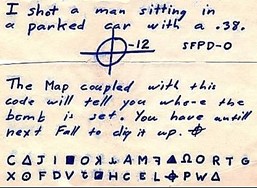 I shot a man sitting in
a parked car with a .38.
-12 SFPD-0
The Map coupled with this
code will tell you whoe the
bomb is set. You have antill
next Fall to dig it up. ⌖
C Δ J I ■ O ʞ ⅄ A M ꟻ ▲ Ω O R T G
X ⊙ F D V ◪ H C E L ⌖ P W Δ